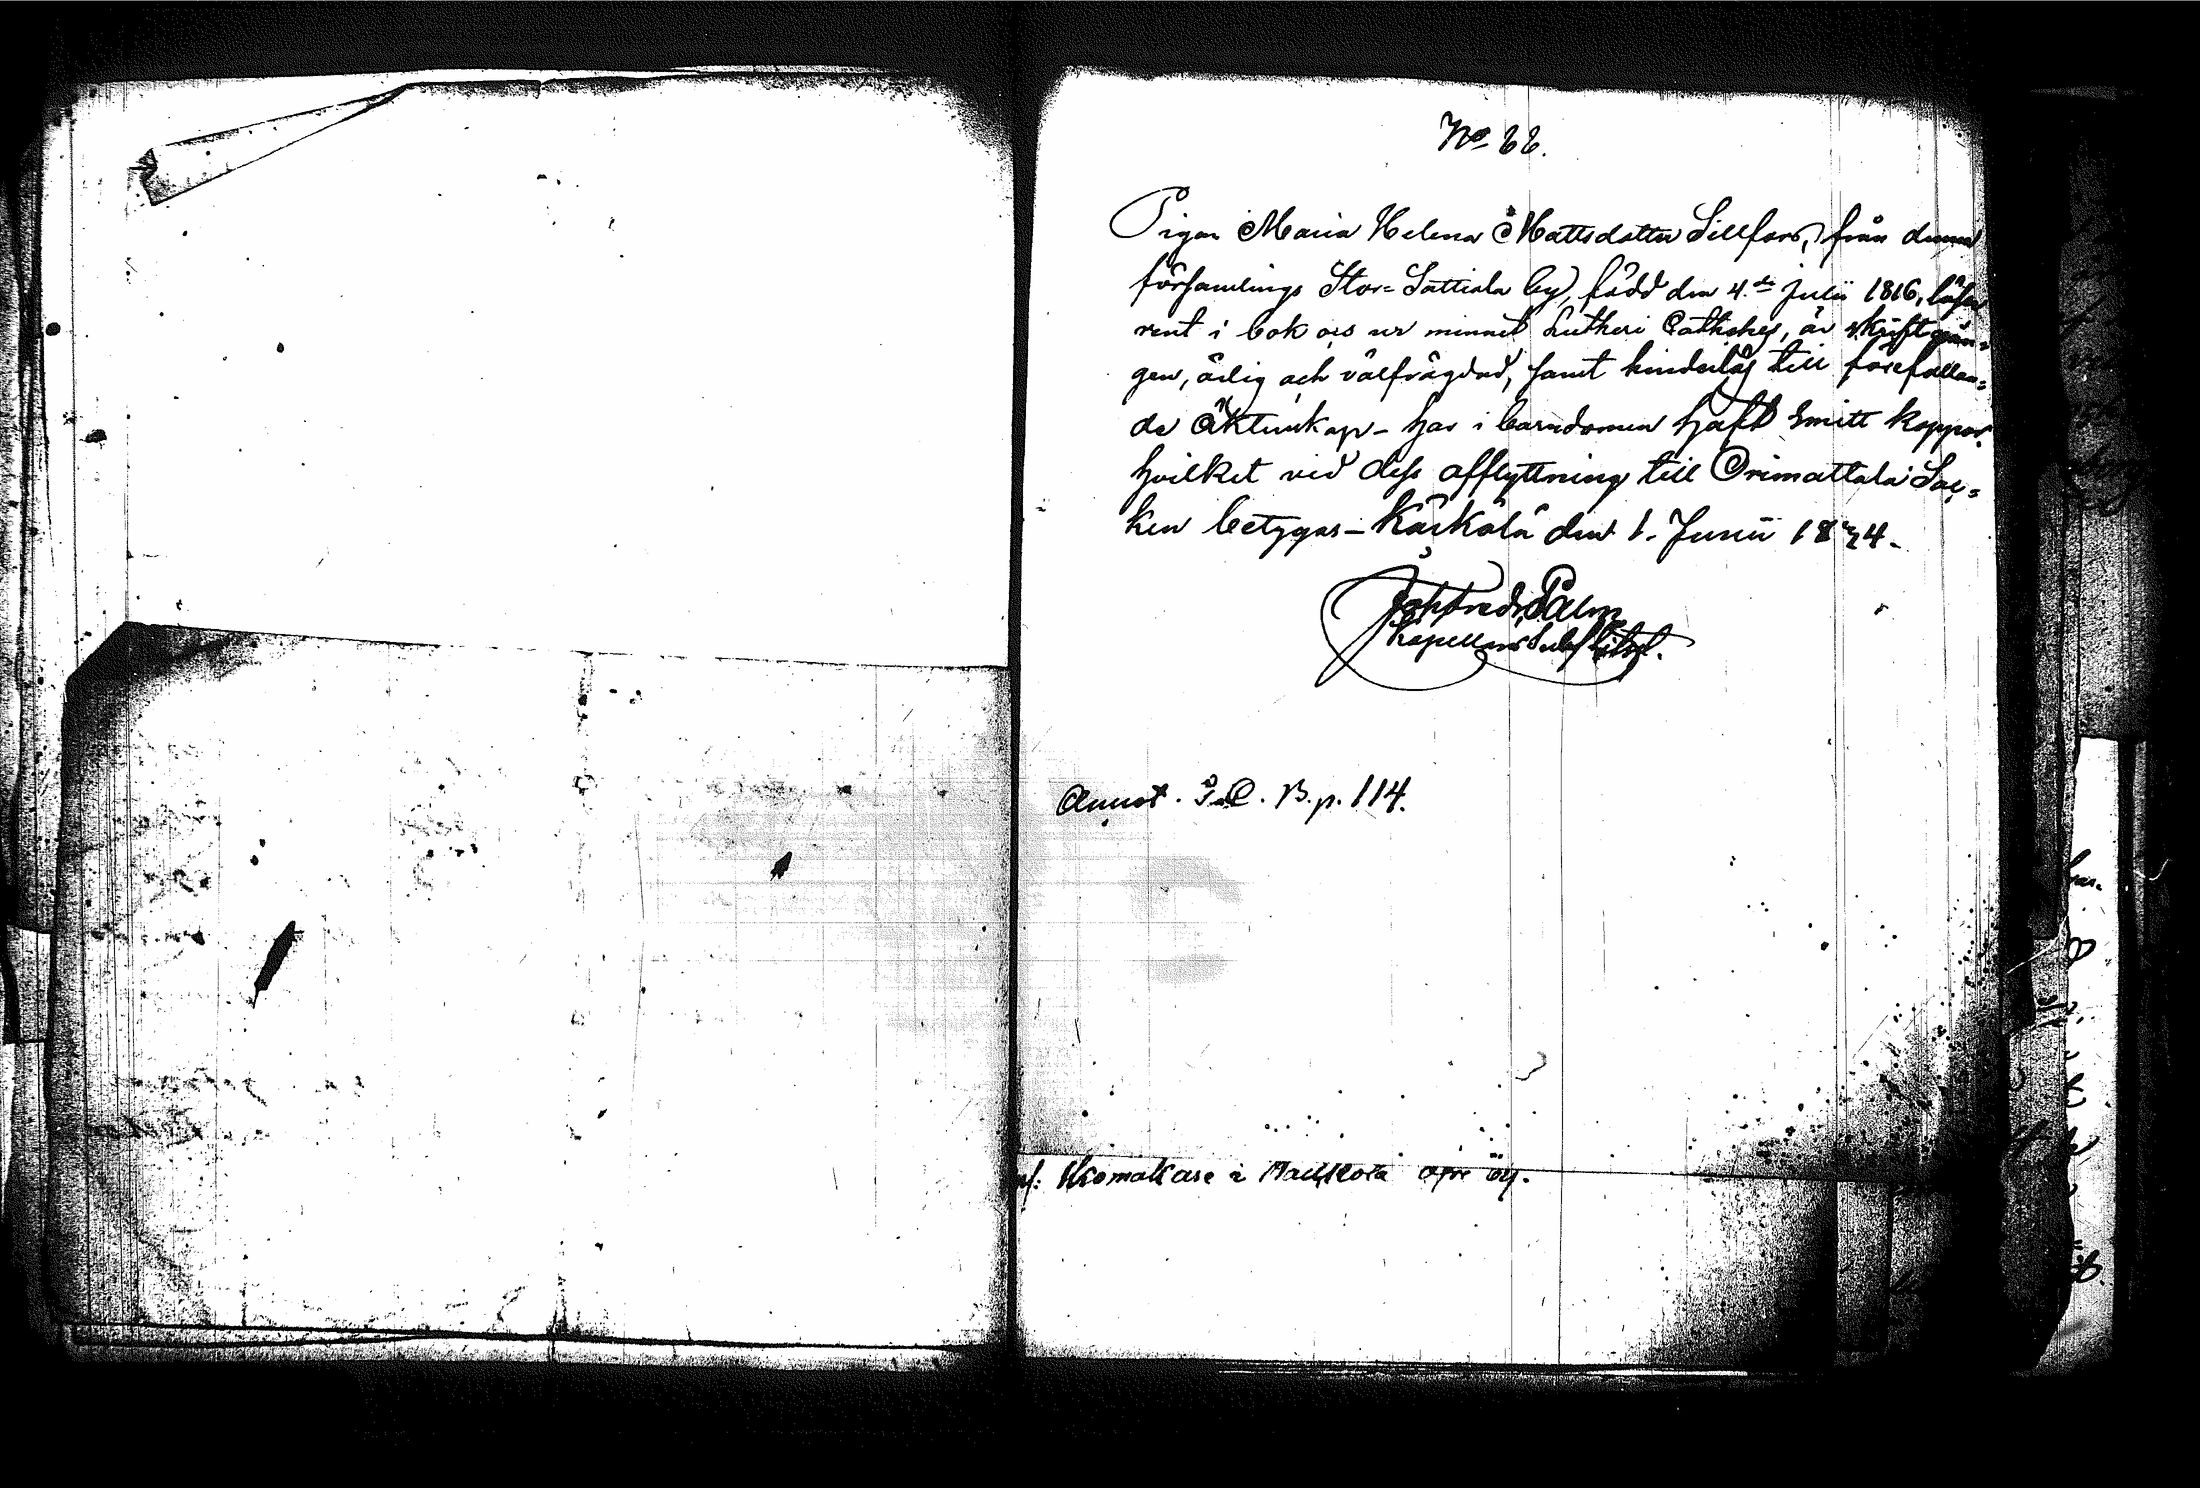 No 22.
Pigan Maria Helena Mattsdotter Sillfors, från denna
församlings Stor-Sattiala by, född den 4.de Julii 1816, läser
rent i bok och ur minnet Lutheri Cathches, är skriftgån=
gen, ärlig och välfrägdad, samt hinderlös till förefallan=
de Äktenskap - har i barndomen haft Smitt koppor,
hvilket vid dess afflyttning till Orimattala Soc=
ken betygas - Kärkölä den 1. Junii 1834.
Joh Fredr Palm
Kapellans Subst
Annot. I. C. B. p. 114.
i